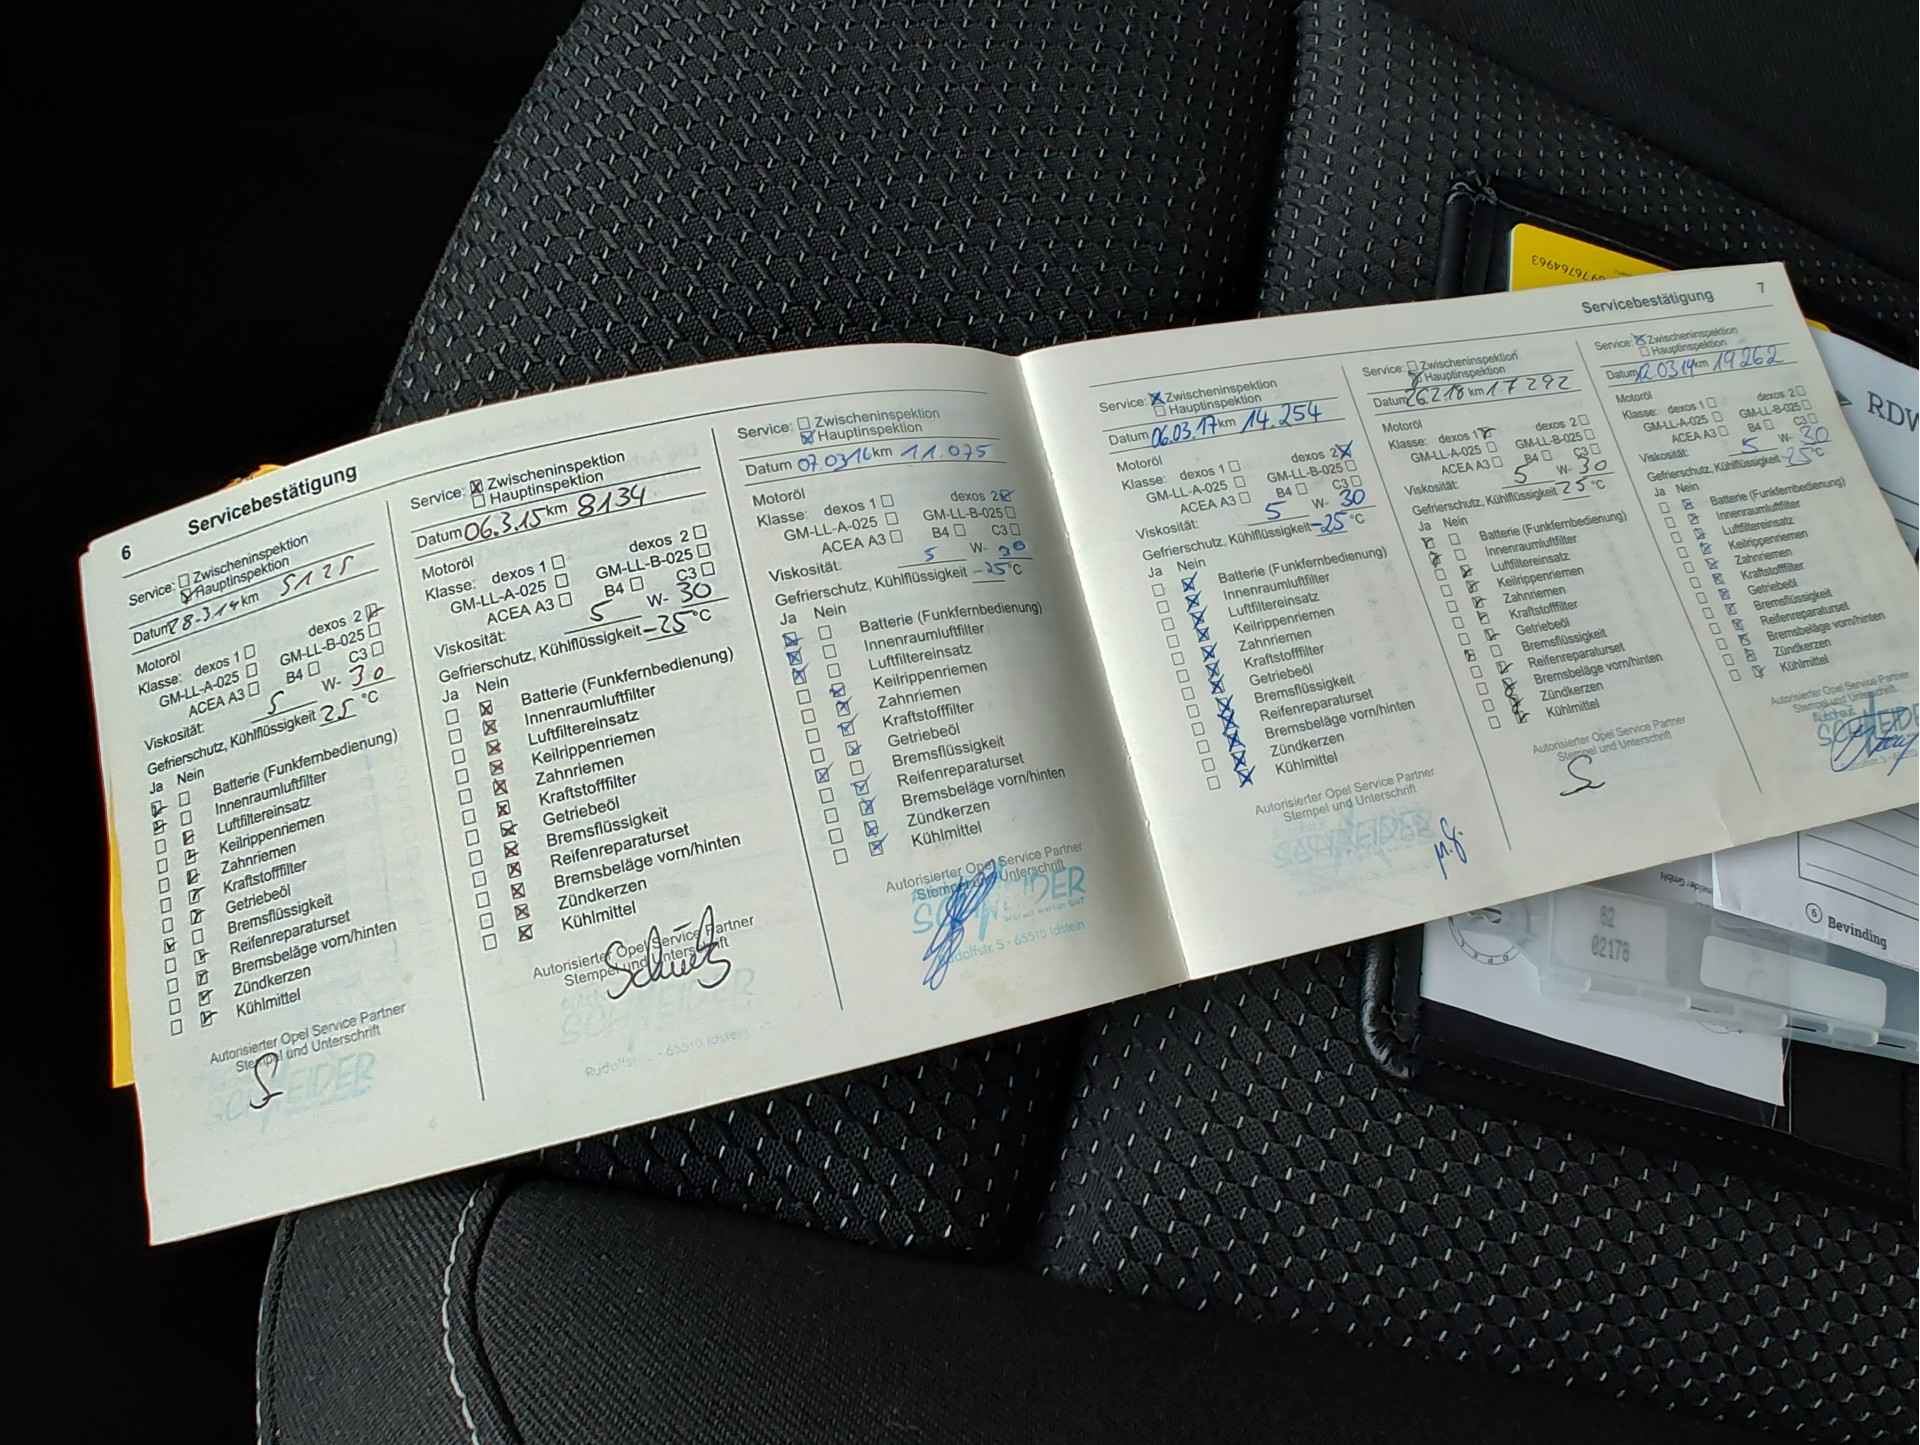 6 Servicebestätigung
Service: Zwischeninspektion
Hauptinspektion
Datum 28-3.14 km 5125
Motoröl
Klasse: dexos 1 dexos 2
GM-LL-A-025 GM-LL-B-025
ACEA A3 B4 C3
Viskosität: 5 W- 30
Gefrierschutz, Kühlflüssigkeit 25 °C
Ja Nein
Batterie (Funkfernbedienung)
Innenraumluftfilter
Luftfiltereinsatz
Keilrippenriemen
Zahnriemen
Kraftstofffilter
Getriebeöl
Bremsflüssigkeit
Reifenreparaturset
Bremsbeläge vorn/hinten
Zündkerzen
Kühlmittel
Autorisierter Opel Service Partner
Stempel und Unterschrift
SCHNEIDER
Service: Zwischeninspektion
Hauptinspektion
Datum 06.3.15 km 8134
Motoröl
Klasse: dexos 1 dexos 2
GM-LL-A-025 GM-LL-B-025
ACEA A3 B4 C3
Viskosität: 5 W- 30
Gefrierschutz, Kühlflüssigkeit -25 °C
Ja Nein
Batterie (Funkfernbedienung)
Innenraumluftfilter
Luftfiltereinsatz
Keilrippenriemen
Zahnriemen
Kraftstofffilter
Getriebeöl
Bremsflüssigkeit
Reifenreparaturset
Bremsbeläge vorn/hinten
Zündkerzen
Kühlmittel
Autorisierter Opel Service Partner
Stempel und Unterschrift
SCHNEIDER
65510 Idstein
Service: Zwischeninspektion
Hauptinspektion
Datum 07.03.16 km 11.075
Motoröl
Klasse: dexos 1 dexos 2
GM-LL-A-025 GM-LL-B-025
ACEA A3 B4 C3
Viskosität: 5 W- 30
Gefrierschutz, Kühlflüssigkeit -25 °C
Ja Nein
Batterie (Funkfernbedienung)
Innenraumluftfilter
Luftfiltereinsatz
Keilrippenriemen
Zahnriemen
Kraftstofffilter
Getriebeöl
Bremsflüssigkeit
Reifenreparaturset
Bremsbeläge vorn/hinten
Zündkerzen
Kühlmittel
Autorisierter Opel Service Partner
Stempel und Unterschrift
SCHNEIDER
Rudolfstr. 5 - 65510 Idstein
Servicebestätigung 7
Service: Zwischeninspektion
Hauptinspektion
Datum 06.03.17 km 14.254
Motoröl
dexos 1 dexos 2
GM-LL-A-025 GM-LL-B-025
ACEA A3 B4 C3
Viskosität: 5 W- 30
Gefrierschutz, Kühlflüssigkeit -25 °C
Ja Nein
Batterie (Funkfernbedienung)
Innenraumluftfilter
Luftfiltereinsatz
Keilrippenriemen
Zahnriemen
Kraftstofffilter
Getriebeöl
Bremsflüssigkeit
Reifenreparaturset
Bremsbeläge vorn/hinten
Zündkerzen
Kühlmittel
Autorisierter Opel Service Partner
Stempel und Unterschrift
SCHNEIDER
Service: Zwischeninspektion
Hauptinspektion
Datum 26.2.18 km 17292
Motoröl
Klasse: dexos 1 dexos 2
GM-LL-A-025 GM-LL-B-025
ACEA A3 B4 C3
Viskosität: 5 W- 30
Gefrierschutz, Kühlflüssigkeit 25 °C
Ja Nein
Batterie (Funkfernbedienung)
Innenraumluftfilter
Luftfiltereinsatz
Keilrippenriemen
Zahnriemen
Kraftstofffilter
Getriebeöl
Bremsflüssigkeit
Reifenreparaturset
Bremsbeläge vorn/hinten
Zündkerzen
Kühlmittel
Autorisierter Opel Service Partner
Stempel und Unterschrift
Service: Zwischeninspektion
Hauptinspektion
Datum 12.03.19 km 19262
Motoröl
Klasse: dexos 1 dexos 2
GM-LL-A-025 GM-LL-B-025
ACEA A3 B4 C3
Viskosität: 5 W- 30
Gefrierschutz, Kühlflüssigkeit -25 °C
Ja Nein
Batterie (Funkfernbedienung)
Innenraumluftfilter
Luftfiltereinsatz
Keilrippenriemen
Zahnriemen
Kraftstofffilter
Getriebeöl
Bremsflüssigkeit
Reifenreparaturset
Bremsbeläge vorn/hinten
Zündkerzen
Kühlmittel
Autorisierter Opel Service Partner
Stempel und Unterschrift
RDW
6 Bevinding
82
02178